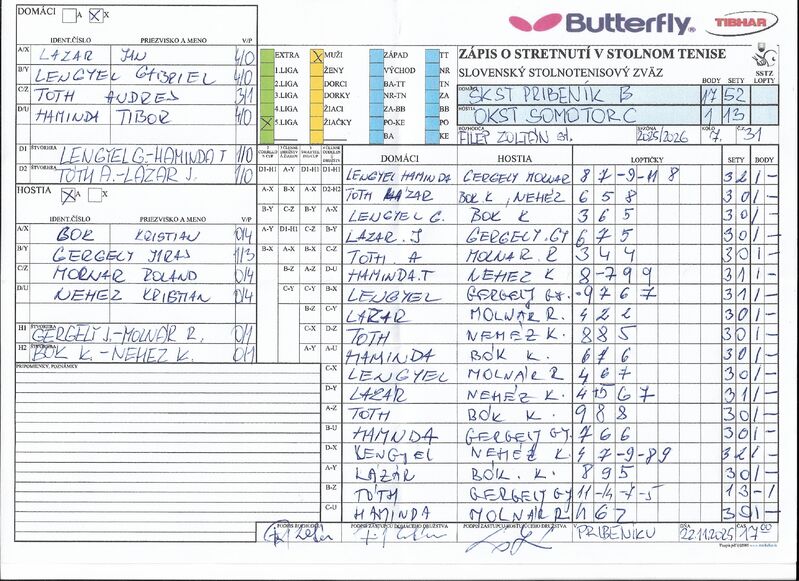 DOMÁCI A X
IDENT.ČÍSLO PRIEZVISKO A MENO V/P
A/X LAZAR JAN 4/0
B/Y LENGYEL GABRIEL 4/0
C/Z TOTH ANDREJ 3/1
D/U HAMINDA TIBOR 4/0
D1 ŠTVORHRA LENGYEL G-HAMINDA T 1/0
D2 ŠTVORHRA TOTH A.-LAZAR J. 1/0
HOSTIA X A X
IDENT.ČÍSLO PRIEZVISKO A MENO V/P
A/X BOK KRISTIAN 0/4
B/Y GERGELY JURAJ 1/3
C/Z MOLNAR ROLAND 0/4
D/U NEHEZ KRISTIAN 0/4
H1 ŠTVORHRA GERGELY J.-MOLNAR R. 0/1
H2 ŠTVORHRA BOK K.-NEHEZ K. 0/1
PRIPOMIENKY, POZNÁMKY
Butterfly
TIBHAR
EXTRA X MUŽI ZÁPAD TT
1.LIGA ŽENY VÝCHOD NR
2.LIGA DORCI BA-TT TN
3.LIGA DORKY NR-TN ZA
4.LIGA ŽIACI ZA-BB BB
X 5.LIGA ŽIAČKY PO-KE PO
BA KE
ZÁPIS O STRETNUTÍ V STOLNOM TENISE
SLOVENSKÝ STOLNOTENISOVÝ ZVÄZ
SSTZ
BODY SETY LOPTY
DOMÁCI SKST PRIBENÍK B 17 52
HOSTIA OKST SOMOTOR C 1 13
ROZHODCA FILEP ZOLTÁN st. SEZÓNA 2025/2026 KOLO 7. Č. 31
DOMÁCI HOSTIA LOPTIČKY SETY BODY
D1-H1 LENGYEL HAMINDA GERGELY MOLNAR 8 7 -9 -11 8 3 2 1 -
D2-H2 TOTH LAZAR BOK K, NEHÉZ 6 5 8 3 0 1 -
A-X LENGYEL G. BOK K 3 6 5 3 0 1 -
B-Y LAZAR. J GERGELY. GY 6 7 5 3 0 1 -
C-Z TOTH. A MOLNAR. R 3 4 4 3 0 1 -
D-U HAMINDA.T NEHEZ K 8 -7 9 9 3 1 1 -
B-X LENGYEL GERGELY GY. -9 7 6 7 3 1 1 -
LAZAR MOLNÁR R. 4 2 2 3 0 1 -
TOTH NEMÉZ K. 8 8 5 3 0 1 -
A-U HAMINDA BÓK K. 6 7 6 3 0 1 -
C-X LENGYEL MOLNÁR R 4 6 7 3 0 1 -
D-Y LAZAR NEHÉZ K. 4 -15 6 7 3 1 1 -
A-Z TOTH BÓK K. 9 8 8 3 0 1 -
B-U HAMINDA GERGELY GY. 7 6 6 3 0 1 -
D-X LENGYEL NEHÉZ K. 4 7 -9 -8 9 3 2 1 -
A-Y LAZÁR BÓK. K. 8 9 5 3 0 1 -
B-Z TÓTH GERGELY GY 11 -4 -7 -5 1 3 - 1
C-U HAMINDA MOLNÁR R 1 6 2 3 0 1 -
PODPIS ROZHODCU PODPIS ZÁSTUPCU DOMÁCEHO DRUŽSTVA PODPIS ZÁSTUPCU HOSŤUJÚCEHO DRUŽSTVA V PRIBENIKU DŇA 22.11.2025 ČAS 17⁰⁰